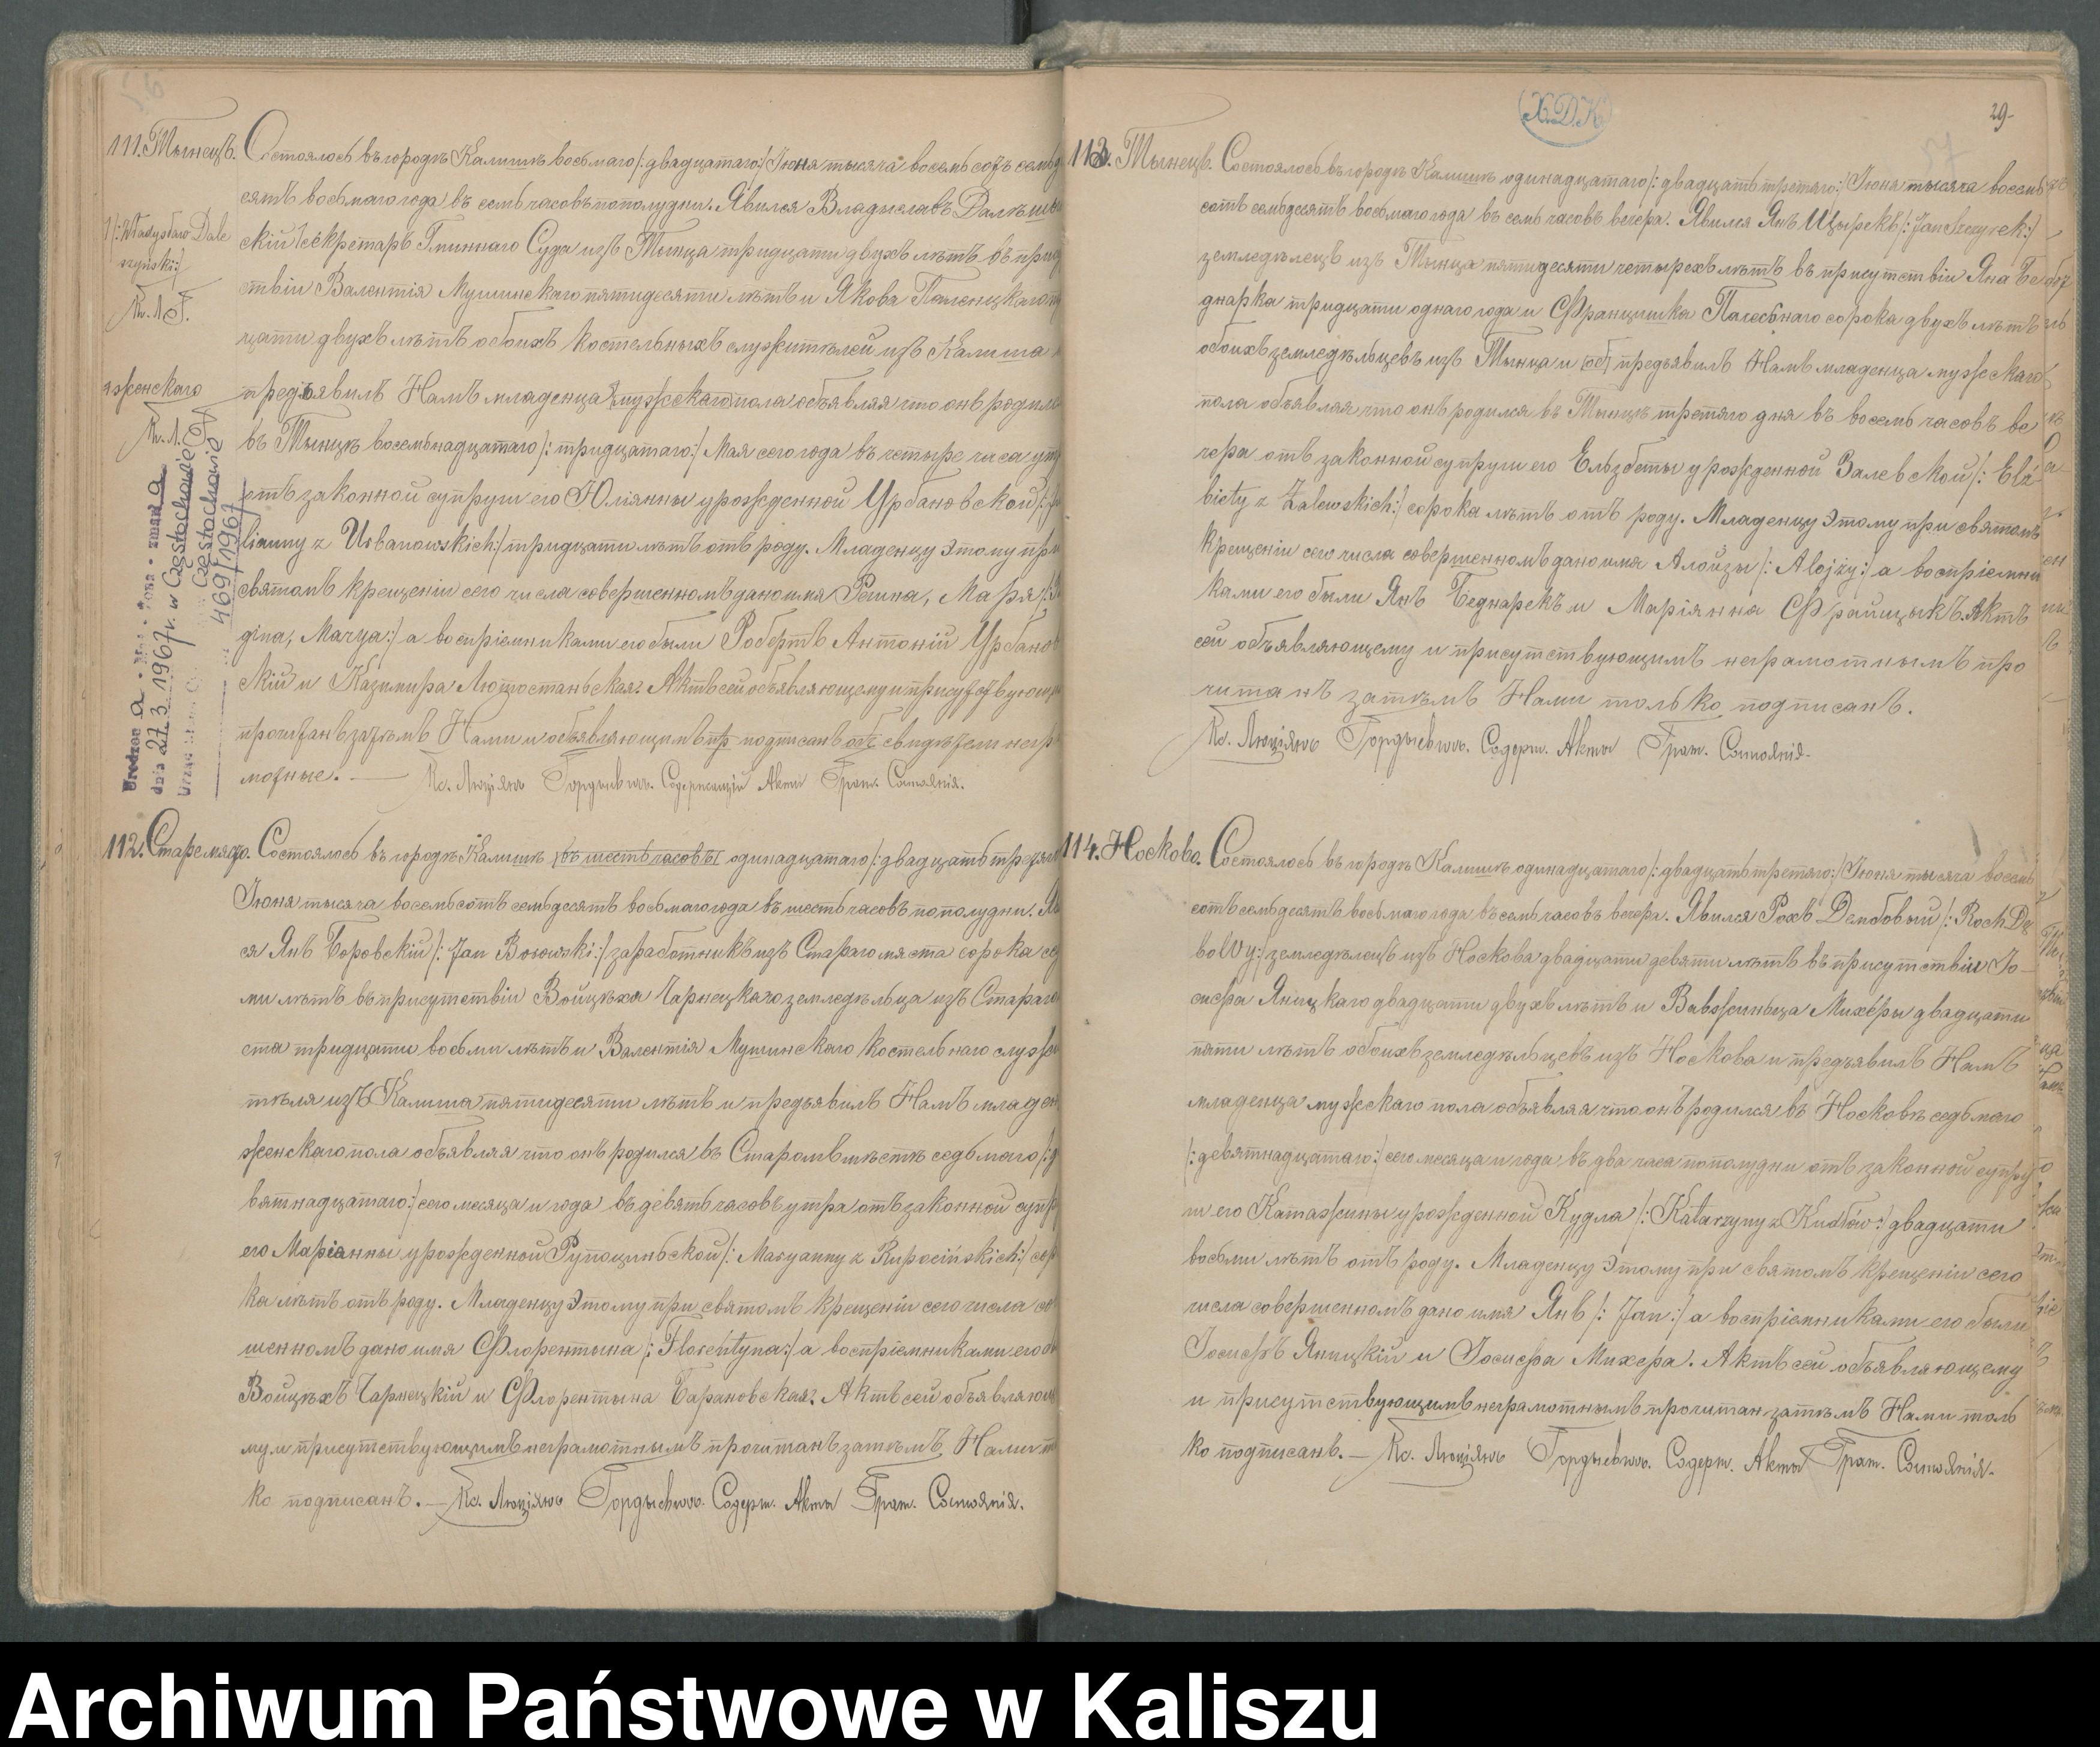 111. Тынецъ. Состоялось въ городѣ Калишѣ восьмаго /:двадцатаго:/ Іюня тысяча восемь сотъ семьд
сятъ восьмаго года въ семь часовъ пополудни. Явился Владыславъ Далѣшы
1/: Władysław Dale
czyński:/
скій Секретарь Гминнаго Суда изъ Тынца тридцати двухъ лѣтъ въ прис
ствіи Валентія Мушинскаго пятидесяти лѣтъ и Якова
цати двухъ лѣтъ обоихъ костельныхъ служителей изъ Калиша
женскаго
предъявилъ Намъ младенца мужескаго пола объявляя что онъ родил
въ Тынцѣ восемьнадцатаго /:тридцатаго:/ Мая сего года въ четыре часа ут
отъ законной супруги его Юліянны урожденной Урбановской /:
lianny z Urbanowskich:/ тридцати лѣтъ отъ роду. Младенцу этому при
святомъ крещеніи сего числа совершенномъ дано имя Регина, Марія /:
gina, Marya:/ а воспріемниками его были Робертъ Антоній Урбанов
скій и Казимира Акть сей объявляющему и присутствующи
прочитанъ затѣмъ Нами и объявляющимъ подписанъ свидѣтели негра
мотные. — Кс. Люціянъ Содержащій Акты Граж. Состоянія.
Urodzona
dnia 27 3 1967 r. w Częstochowie
Częstochowie
469/1967
112. Старемясто. Состоялось въ городѣ Калишѣ въ шесть часовъ одинадцатаго /:двадцать третяго
Іюня тысяча восемьсотъ семьдесятъ восьмаго года въ шесть часовъ пополудни. Яв
ся Янъ Боровскій /: Jan Borowski:/ заработникъ изъ Старагомяста сорока се
ми лѣтъ въ присутствіи Войцѣха Чарнецкаго земледѣльца изъ Стараго
ста тридцати восьми лѣтъ и Валентія Мушинскаго костельнаго служи
теля изъ Калиша пятидесяти лѣтъ и предъявилъ Намъ младен
женскаго пола объявляя что онъ родился въ Старомъ мѣстѣ седьмаго /:д
вятнадцатаго:/ сего мѣсяца и года въ девять часовъ утра отъ законной супр
его Маріанны урожденной Рупоцинской /: Maryanny z Rupocińskich:/ сор
ка лѣтъ отъ роду. Младенцу этому при святомъ крещеніи сего числа со
шенномъ дано имя Флорентына /: Florentyna:/ а воспріемниками его б
Войцѣхъ Чарнецкій и Флорентына Барановская. Актъ сей объявляющ
му и присутствующимъ неграмотнымъ прочитанъ затѣмъ Нами т
ко подписанъ. — Кс. Люціянъ Содерж. Акты Граж. Состоянія.
Х.Д.К.
29
57
113. Тынецъ. Состоялось въ городѣ Калишѣ одинадцатаго /:двадцать третяго:/ Іюня тысяча восемь
сотъ семьдесятъ восьмаго года въ семь часовъ вечера. Явился Янъ Щырекъ /: Jan Szczyrek:/
земледѣлецъ изъ Тынца пятидесяти четырехъ лѣтъ въ присутствіи Яна Бе
днарка тридцати одного года и Францишка сорока двухъ лѣтъ
обоихъ земледѣльцевъ изъ Тынца и предъявилъ Намъ младенца мужескаго
пола объявляя что онъ родился въ Тынцѣ третяго дня въ восемь часовъ ве
чера отъ законной супруги его Ельзбеты урожденной Залевской /: Elż
biety z Zalewskich:/ сорока лѣтъ отъ роду. Младенцу этому при святомъ
крещеніи сего числа совершенномъ дано имя Алойзы /: Alojzy:/ а воспріемни
ками его были Янъ Беднарекъ и Маріянна Франщыкъ. Актъ
сей объявляющему и присутствующимъ неграмотнымъ про
читанъ затѣмъ Нами только подписанъ.
Кс. Люціянъ Содерж. Акты Граж. Состоянія.
114. Носково. Состоялось въ городѣ Калишѣ одинадцатаго /:двадцать третяго:/ Іюня тысяча восемь
сотъ семьдесятъ восьмаго года въ семь часовъ вечера. Явился Рохъ Дембовый /: Roch Dę
bowy:/ земледѣлецъ изъ Носкова двадцати девяти лѣтъ въ присутствіи Іо
сифа Яницкаго двадцати двухъ лѣтъ и Вавжиньца Михеры двадцати
пяти лѣтъ обоихъ земледѣльцевъ изъ Носкова и предъявилъ Намъ
младенца мужескаго пола объявляя что онъ родился въ Носковѣ седьмаго
/:девятнадцатаго:/ сего месяца и года въ два часа пополудни отъ законной супру
ги его Катажины урожденной Кудла /: Katarzyny z Kudłów:/ двадцати
восьми лѣтъ отъ роду. Младенцу этому при святомъ крещеніи сего
числа совершенномъ дано имя Янъ /: Jan:/ а воспріемниками его были
Іосифъ Яницкій и Іосифа Михера. Актъ сей объявляющему
и присутствующимъ неграмотнымъ прочитан затѣмъ Нами толь
ко подписанъ. — Кс. Люціянъ Содерж. Акты Граж. Состоянія.
Archiwum Państwowe w Kaliszu